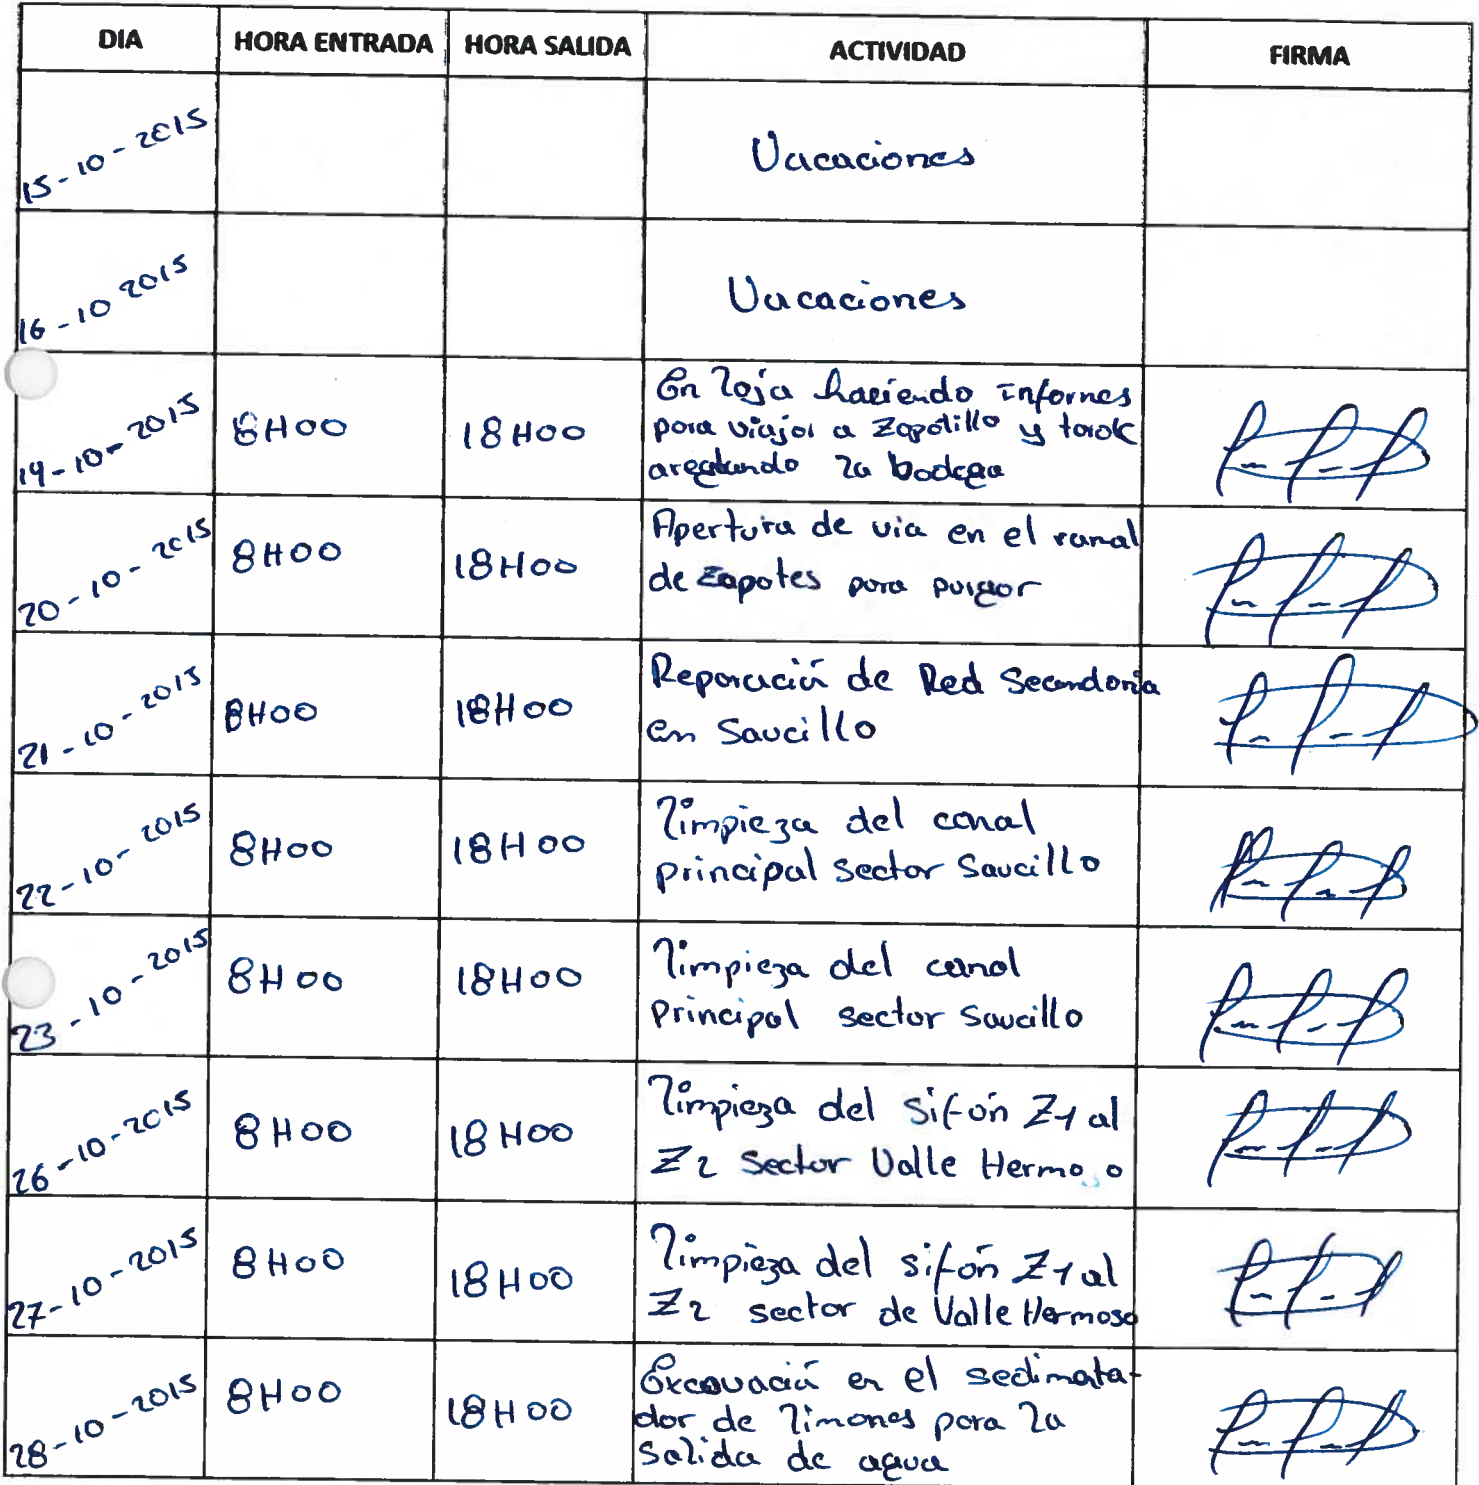 DIA HORA ENTRADA HORA SALIDA ACTIVIDAD FIRMA
15-10-2015 Vacaciones
16-10 2015 Vacaciones
19-10-2015 8H00 18H00 En Loja haciendo informes
para viajar a Zapotillo y
aregtando la bodega
20-10-2015 8H00 18H00 Apertura de via en el ramal
de Zapotes para purgar
21-10-2015 8H00 18H00 Reparación de Red Secondaria
en Saucillo
22-10-2015 8H00 18H00 Limpieza del canal
principal sector Saucillo
23-10-2015 8H00 18H00 Limpieza del canal
principal sector Saucillo
26-10-2015 8H00 18H00 Limpieza del sifón Z1 al
Z2 sector Valle Hermoso
27-10-2015 8H00 18H00 Limpieza del sifón Z1 al
Z2 sector de Valle Hermoso
28-10-2015 8H00 18H00 Excavación en el sedimata-
dor de Limones para la
salida de agua